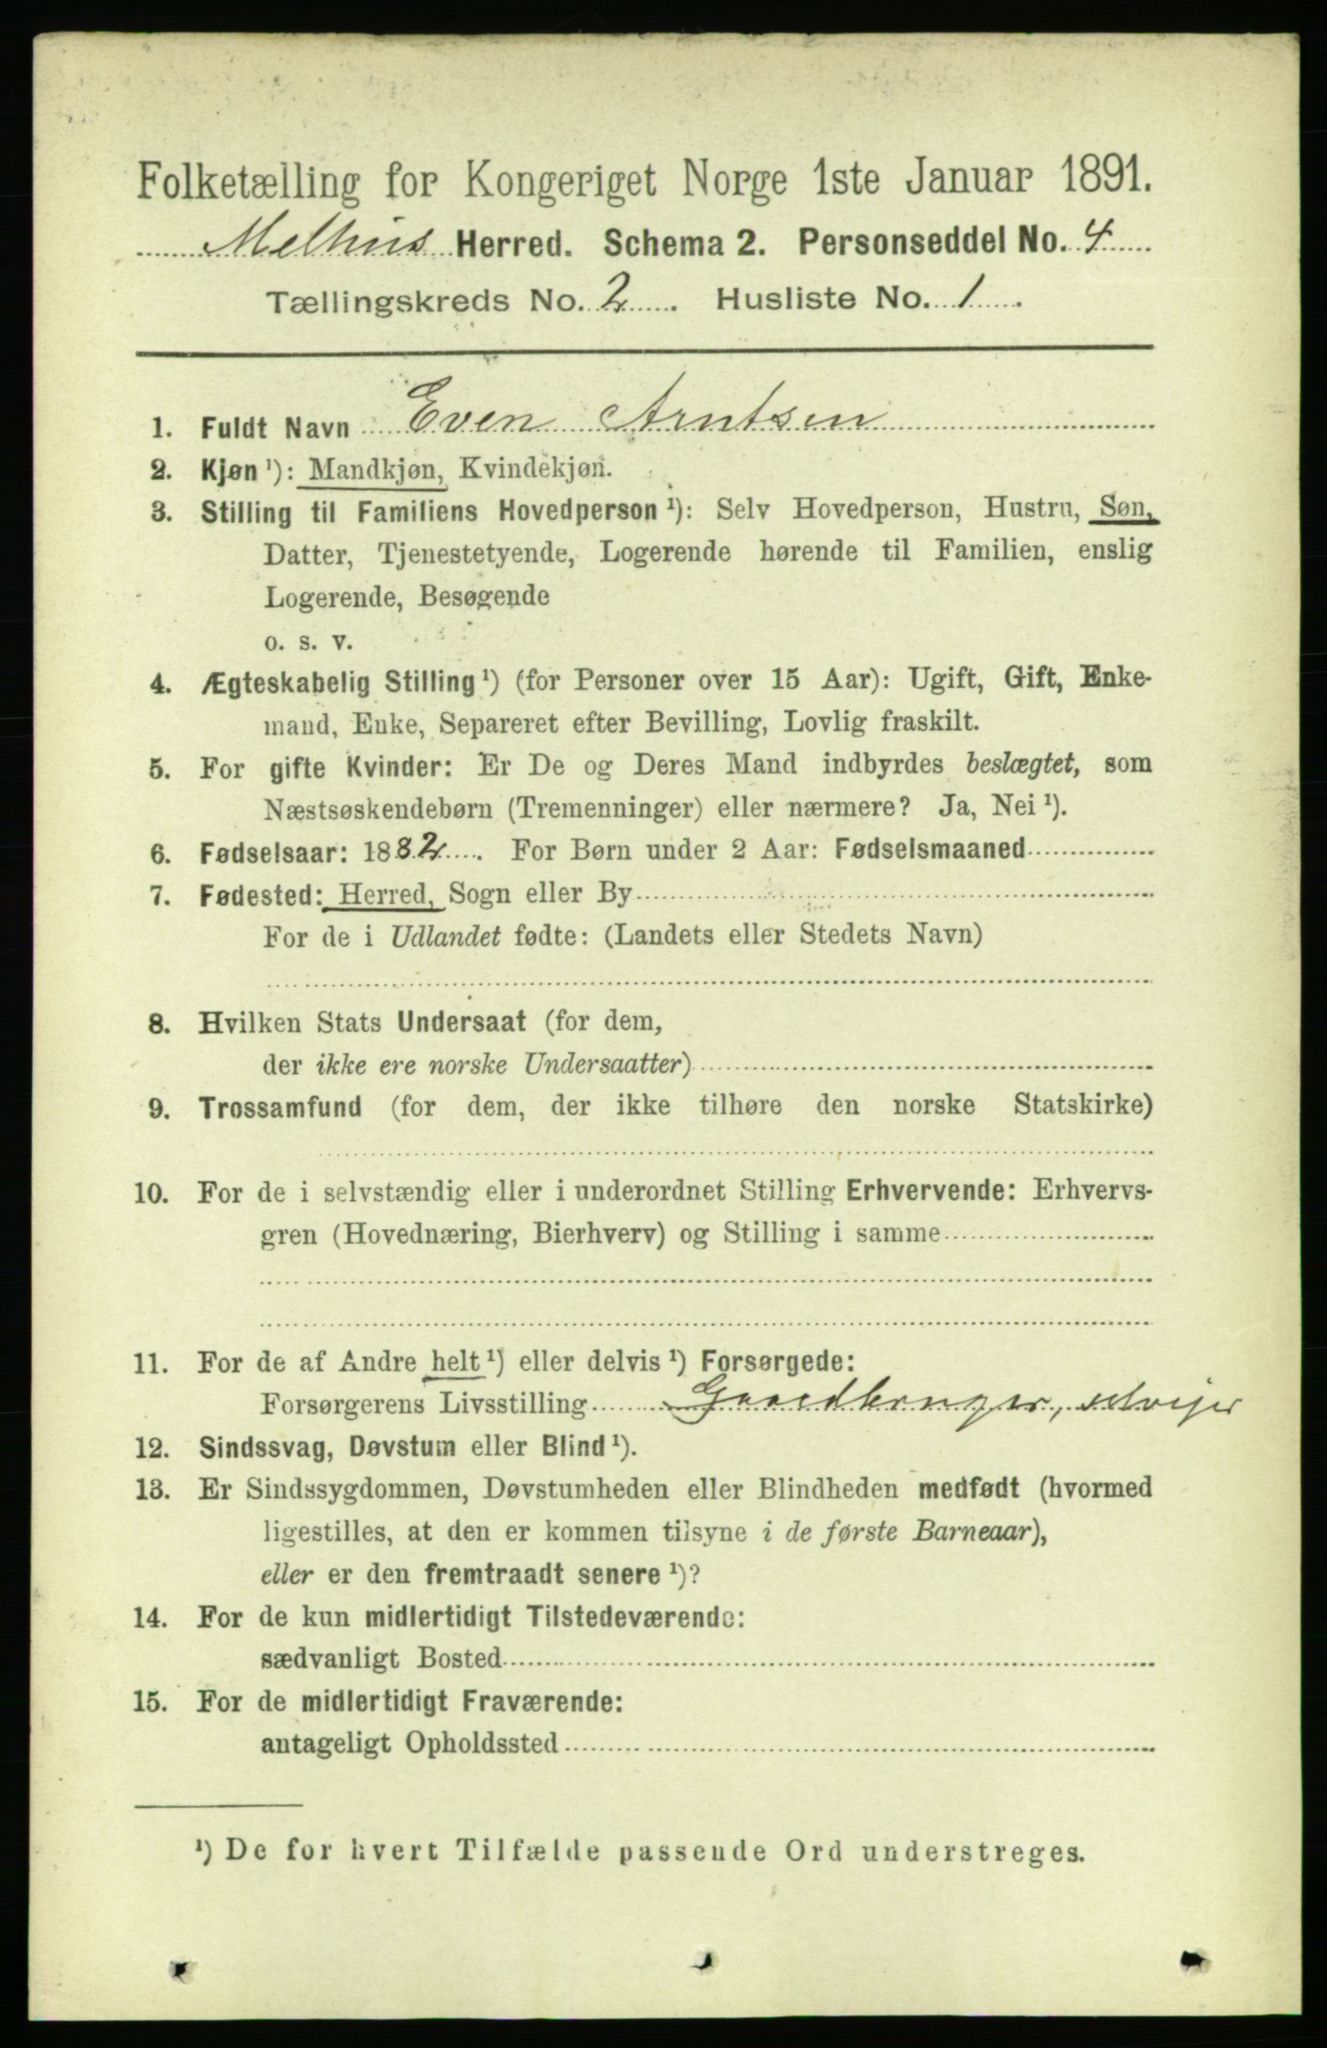 Folketælling for Kongeriget Norge 1ste Januar 1891.
Melhus Herred. Schema 2. Personseddel No. 4
Tællingskreds No. 2. Husliste No. 1.
1. Fuldt Navn Even Arntsen
2. Kjøn ¹): Mandkjøn, Kvindekjøn.
3. Stilling til Familiens Hovedperson ¹): Selv Hovedperson, Hustru, Søn,
Datter, Tjenestetyende, Logerende hørende til Familien, enslig
Logerende, Besøgende
o. s. v.
4. Ægteskabelig Stilling ¹) (for Personer over 15 Aar): Ugift, Gift, Enke-
mand, Enke, Separeret efter Bevilling, Lovlig fraskilt.
5. For gifte Kvinder: Er De og Deres Mand indbyrdes beslægtet, som
Næstsøskendebørn (Tremenninger) eller nærmere? Ja, Nei ¹).
6. Fødselsaar: 1882. For Børn under 2 Aar: Fødselsmaaned
7. Fødested: Herred, Sogn eller By
For de i Udlandet fødte: (Landets eller Stedets Navn)
8. Hvilken Stats Undersaat (for dem,
der ikke ere norske Undersaatter)
9. Trossamfund (for dem, der ikke tilhøre den norske Statskirke)
10. For de i selvstændig eller i underordnet Stilling Erhvervende: Erhvervs-
gren (Hovednæring, Bierhverv) og Stilling i samme
11. For de af Andre helt ¹) eller delvis ¹) Forsørgede:
Forsørgerens Livsstilling Gaardbruger, selvejer
12. Sindssvag, Døvstum eller Blind ¹).
13. Er Sindssygdommen, Døvstumheden eller Blindheden medfødt (hvormed
ligestilles, at den er kommen tilsyne i de første Barneaar),
eller er den fremtraadt senere ¹)?
14. For de kun midlertidigt Tilstedeværende:
sædvanligt Bosted
15. For de midlertidigt Fraværende:
antageligt Opholdssted
¹) De for hvert Tilfælde passende Ord understreges.